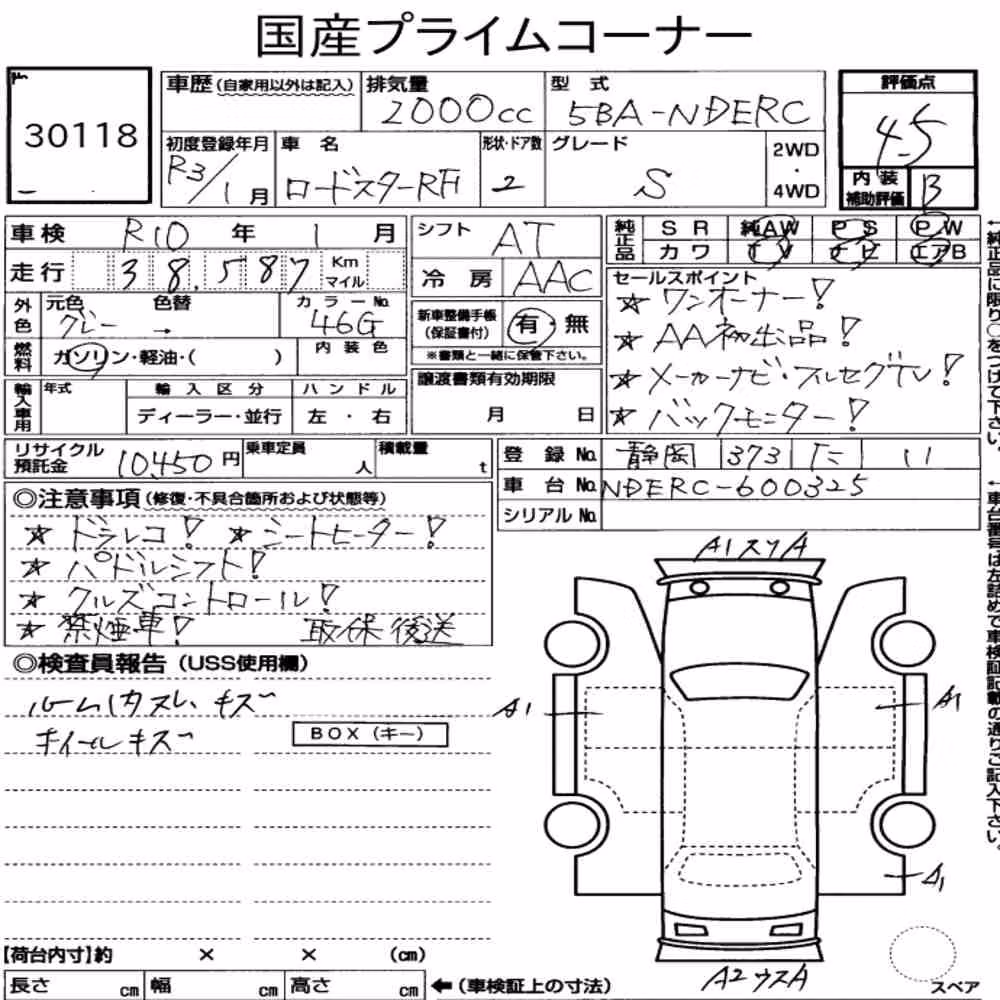 国産プライムコーナー
30118
車歴(自家用以外は記入)
排気量
2000cc
型式
5BA-NDERC
評価点
4.5
初度登録年月
R3/1月
車名
ロードスターRF
形状・ドア数
2
グレード
S
2WD
・
4WD
内装
補助評価
B
車検 R10年 1月
シフト AT
純正品
SR 純AW PS PW
カワ TV ナビ エアB
走行 38,587 Km
マイル
冷房 AAC
セールスポイント
☆ ワンオーナー!
☆ AA初出品!
☆ メーカーナビ・フルセグTV!
☆ バックモニター!
外色
元色 色替
グレー →
カラーNo.
46G
新車整備手帳
(保証書付)
有・無
※書類と一緒に保管下さい。
燃料
ガソリン・軽油・( )
内装色
輸入車用
年式
輸入区分
ディーラー・並行
ハンドル
左・右
譲渡書類有効期限
月 日
リサイクル
預託金
10,450円
乗車定員
人
積載量
t
登録No. 静岡 373 に 11
車台No. NDERC-600325
シリアルNo.
◎注意事項(修復・不具合箇所および状態等)
☆ ドラレコ! ☆ シートヒーター!
☆ パドルシフト!
☆ クルズコントロール!
☆ 禁煙車! 取保後送
◎検査員報告(USS使用欄)
ルーム内スレ、キズ
ホイールキズ
BOX(キー)
A1スリA
A1
A1
A1
A2ウスA
スペア
【荷台内寸】約 × × (cm)
長さ cm 幅 cm 高さ cm
←(車検証上の寸法)
←純正品に限り○をつけて下さい。
←車台番号は左詰めで車検証記載の通りご記入下さい。